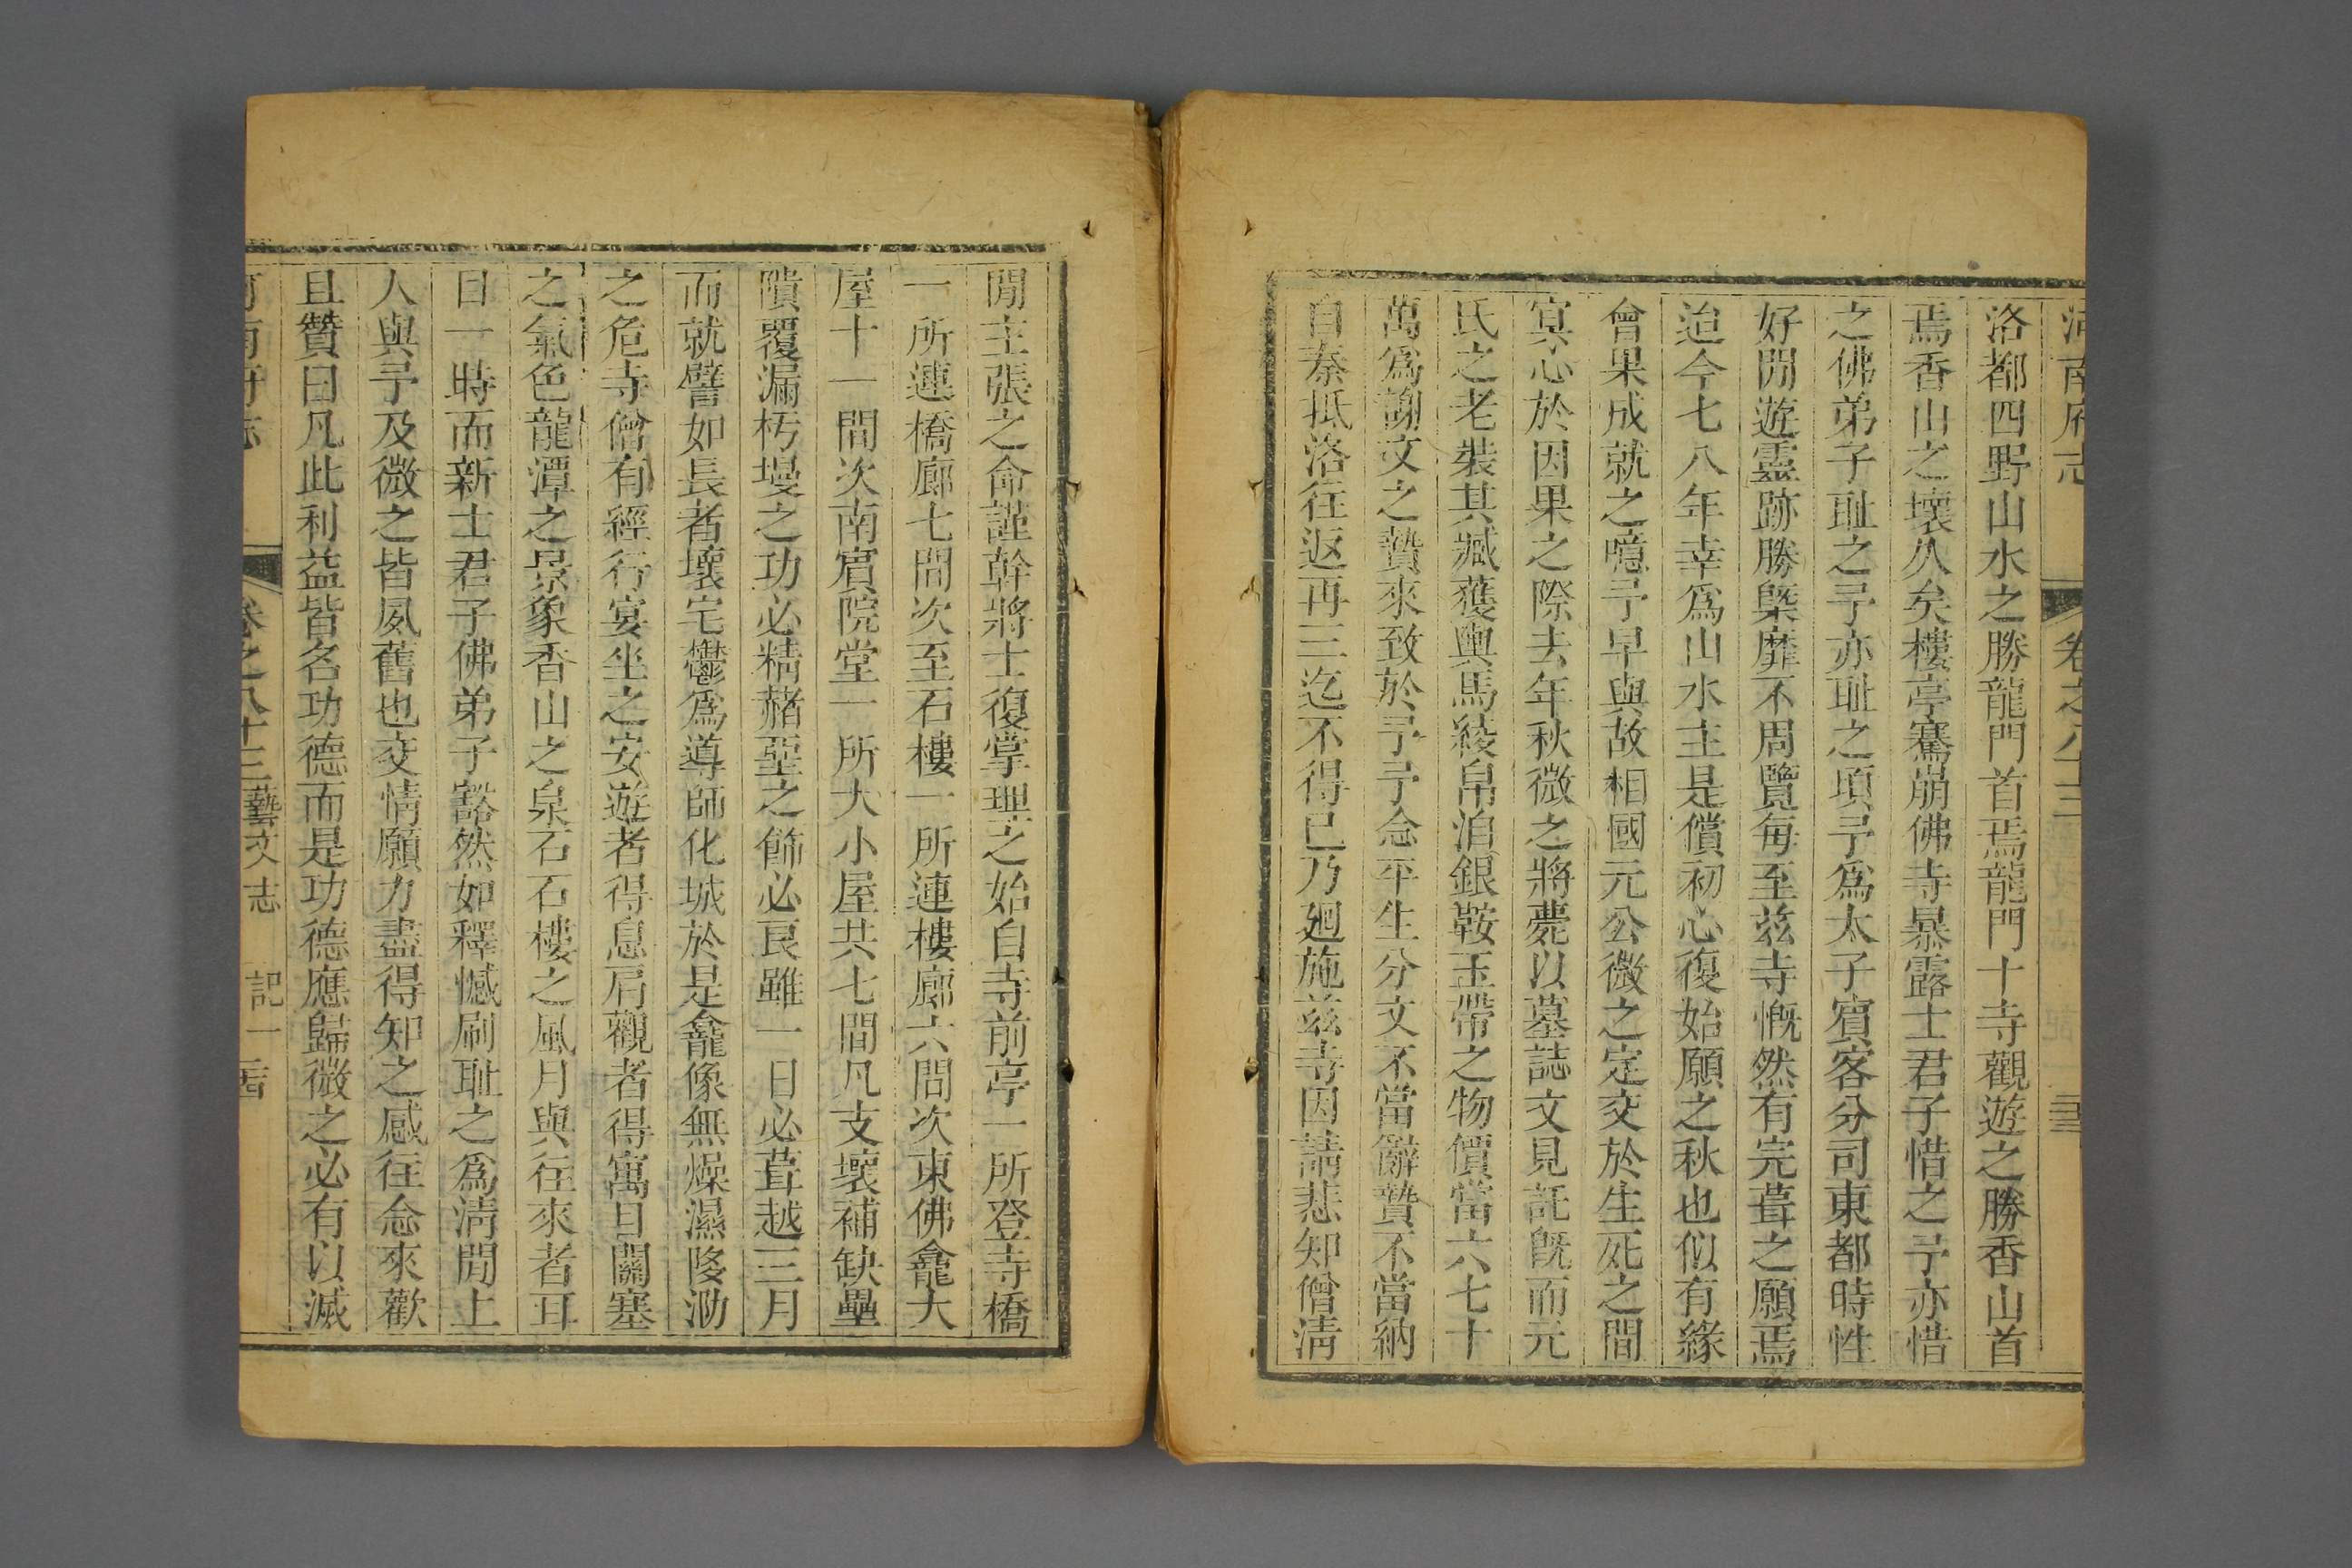 河南府志 卷之八十三
洛都四野山水之勝龍門首焉龍門十寺觀遊之勝香山首
焉香山之壞久矣樓亭騫崩佛寺暴露士君子惜之予亦惜
之佛弟子耻之予亦耻之項予爲太子賓客分司東都時性
好閒遊靈跡勝槩靡不周覽每至兹寺慨然有完葺之願焉
迨今七八年幸爲山水主是償初心復始願之秋也似有緣
會果成就之噫予早與故相國元公微之定交於生死之間
冥心於因果之際去年秋微之將薨以墓誌文見託旣而元
氏之老裝其臧獲輿馬綾帛洎銀鞍玉帶之物價當六七十
萬爲謝文之贄來致於予予念平生分文不當辭贄不當納
自秦抵洛往返再三迄不得已乃廻施兹寺因請悲知僧淸
閒主張之命謹幹將士復掌理之始自寺前亭一所登寺橋
一所連橋廊七間次至石樓一所連樓廊六間次東佛龕大
屋十一間次南賓院堂一所大小屋共七間凡支壞補缺壘
隤覆漏杇墁之功必精赭堊之飾必良雖一日必葺越三月
而就譬如長者壞宅鬱爲導師化城於是龕像無燥濕陊泐
之危寺僧有經行宴坐之安遊者得息肩觀者得寓目關塞
之氣色龍潭之景象香山之泉石石樓之風月與往來者耳
目一時而新士君子佛弟子豁然如釋憾刷耻之爲淸閒上
人與予及微之皆夙舊也交情願力盡得知之感往念來歡
且贊曰凡此利益皆名功德而是功德應歸微之必有以滅
河南府志 卷之八十三 藝文志 記一